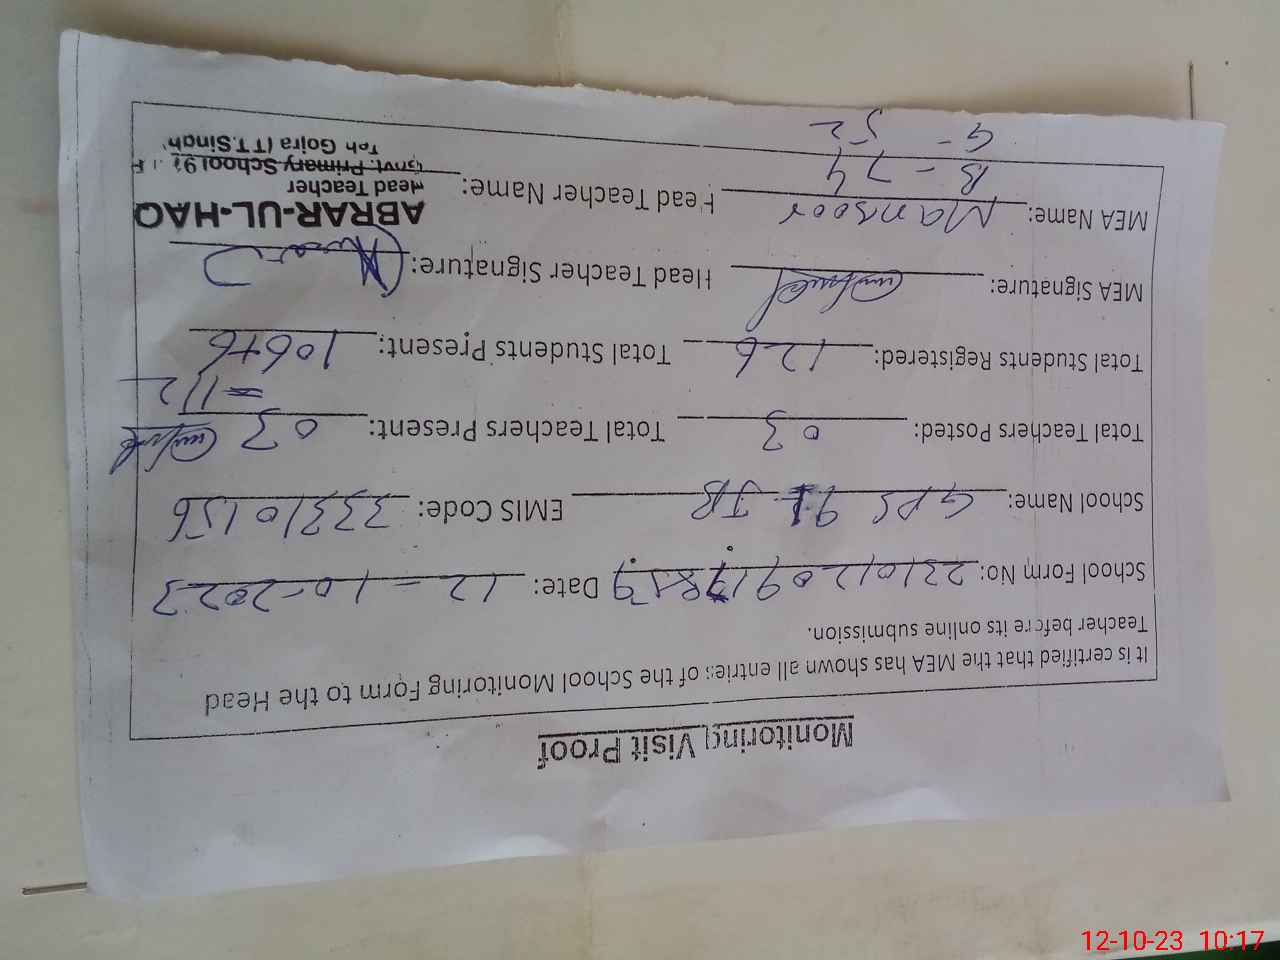 Monitoring Visit Proof
It is certified that the MEA has shown all entries of the School Monitoring Form to the Head
Teacher before its online submission.
School Form No: Date: 12-10-2023
School Name: GPS 91 JB EMIS Code: 33310156
Total Teachers Posted: 03 Total Teachers Present: 03
= 112
Total Students Registered: 126 Total Students Present: 106+6
MEA Signature: Head Teacher Signature:
MEA Name: Mansoor Head Teacher Name: ABRAR-UL-HAQ
Head Teacher
Govt. Primary School
Teh Gojra (T.T.Singh)
B - 74
G - 52
12-10-23 10:17